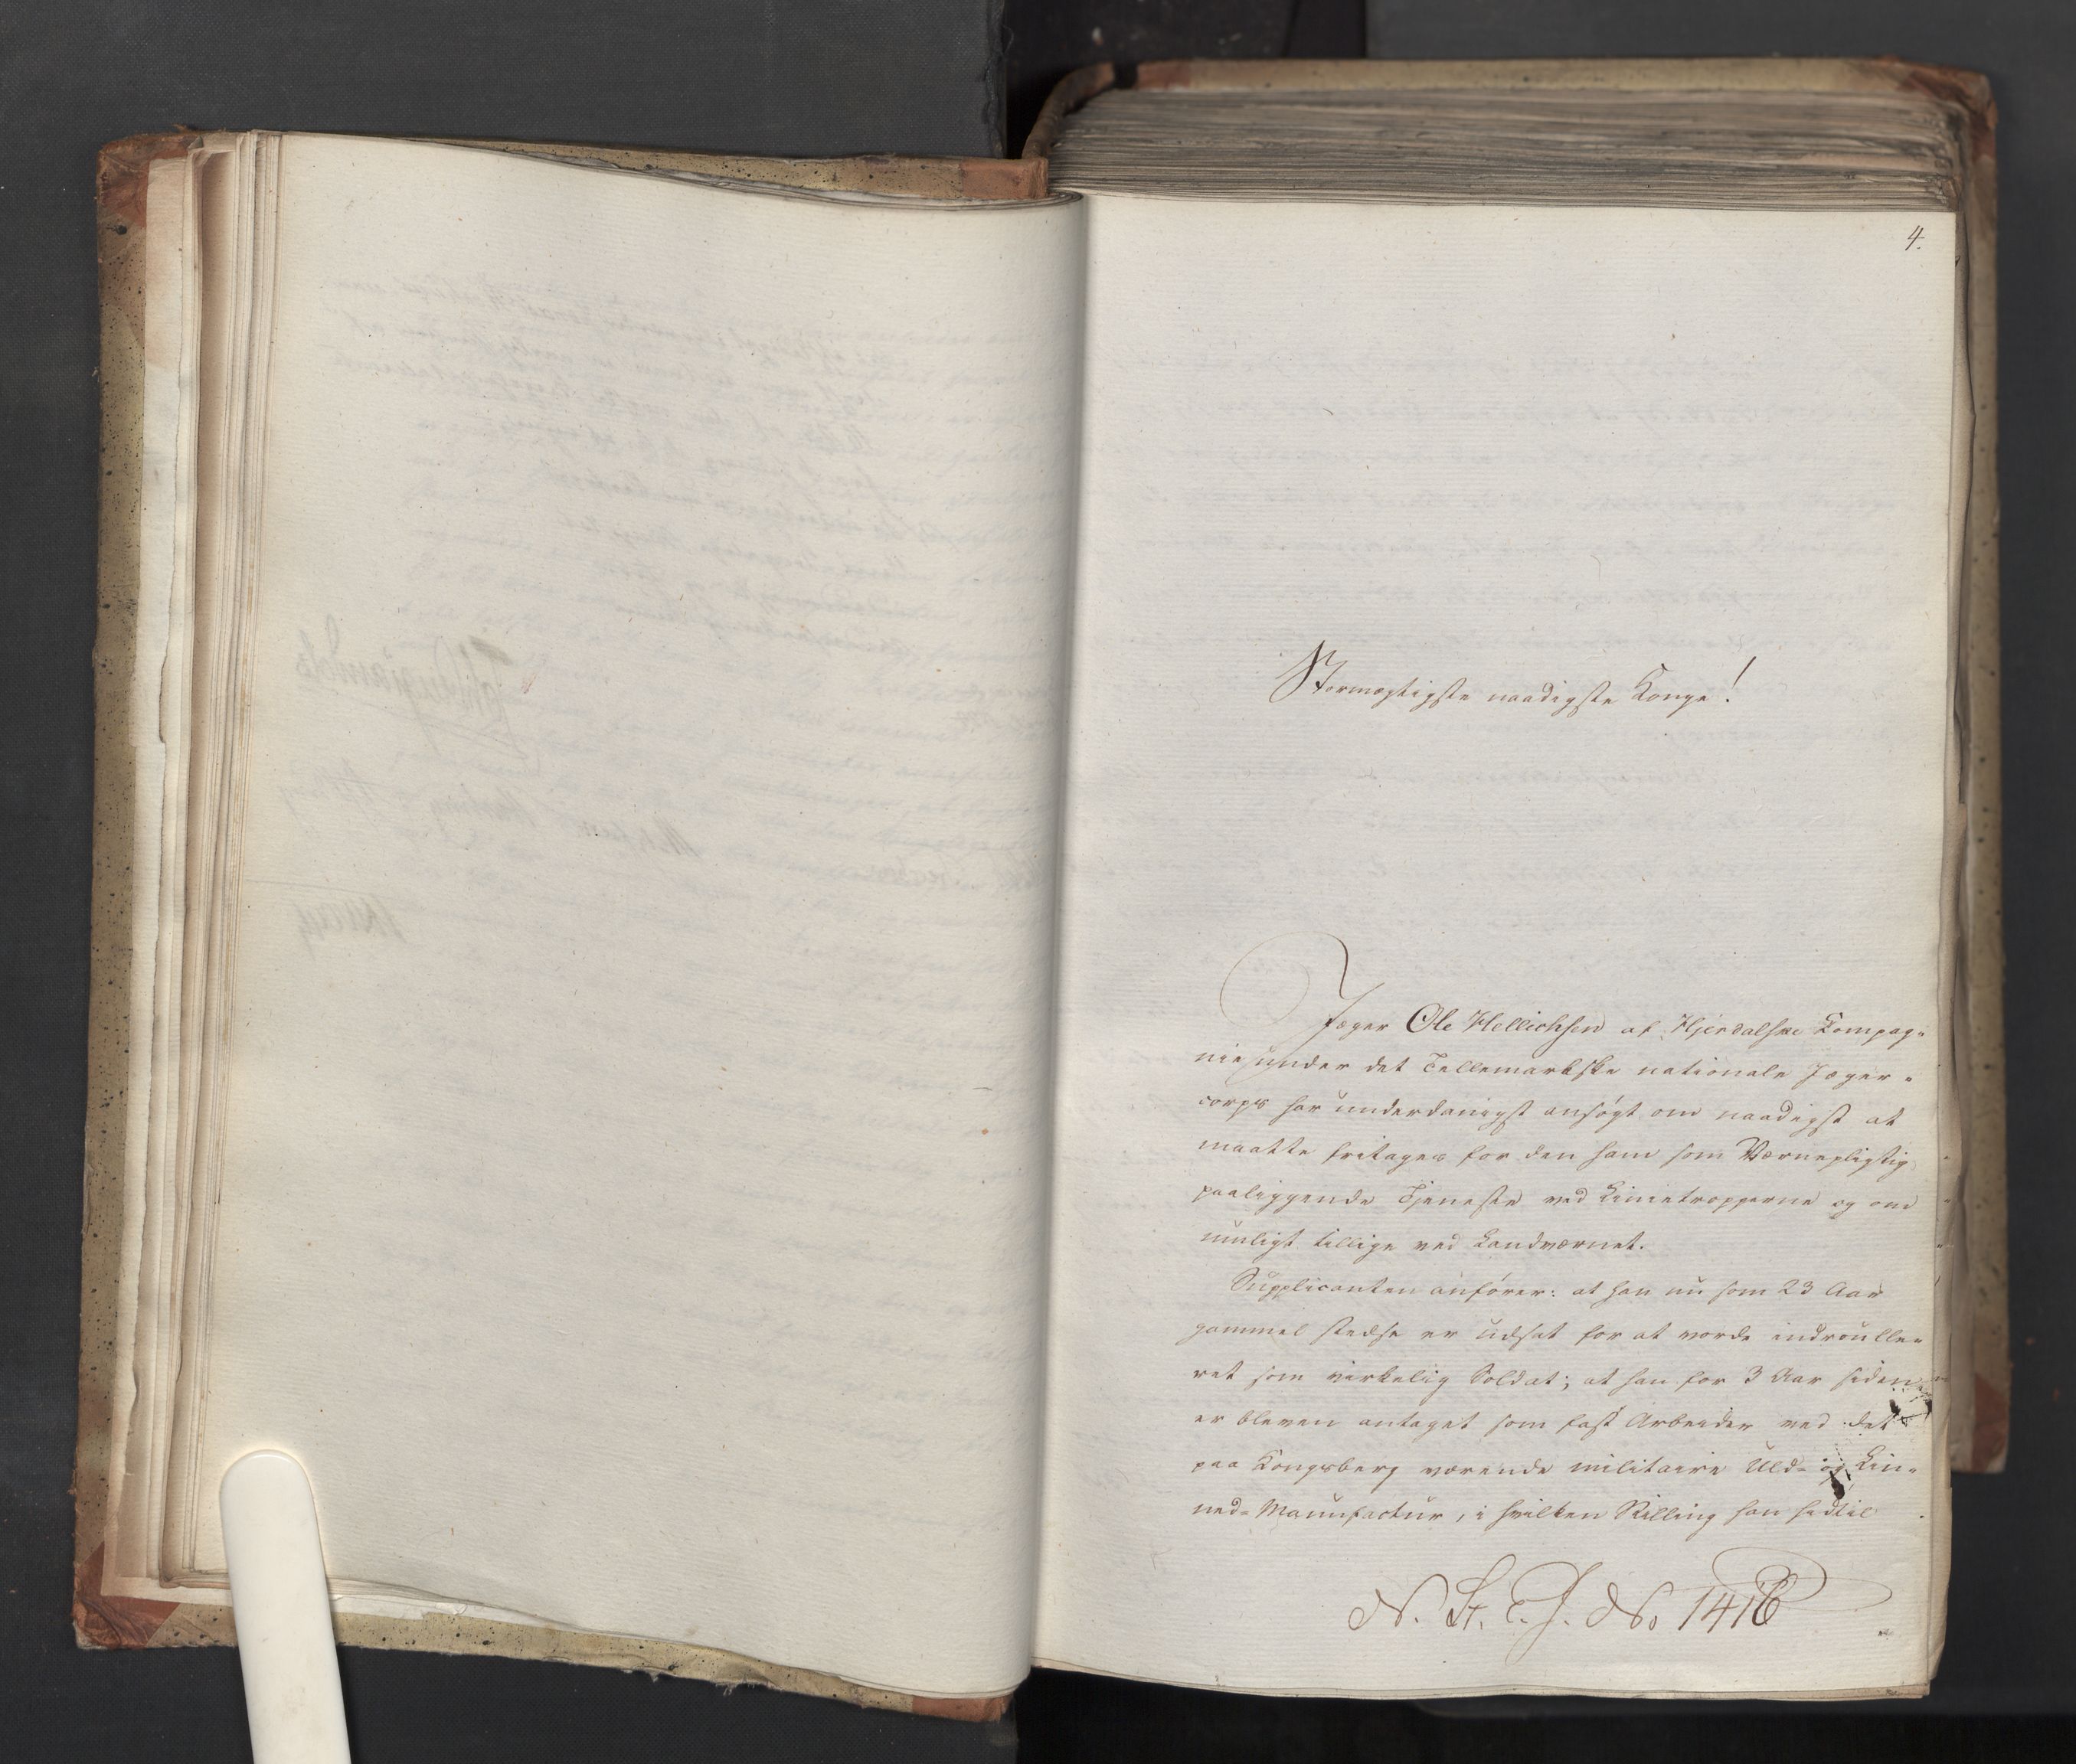 4.
Stormægtigste naadigste Konge!
Jæger Ole Hellichsen af Hjerdalske Compag-
nie under det Tellemarkske nationale Jæger-
corps har underdanigst ansøgt om naadigst at
maatte fritages for den ham som Værnepligtig
paaliggende Tjeneste ved Linietropperne og om
muligt tillige ved Landværnet.
Supplicanten anfører: at han nu som 23 Aar
gammel stedse er udsat for at vorde indroulle-
ret som virkelig Soldat; at han for 3 Aar siden
er bleven antaget som fast Arbeider ved det
paa Kongsberg værende militaire Uld- og Lin-
ned-Manufactur, i hvilken Stilling han hidtil
N. St. C. J. No 1416